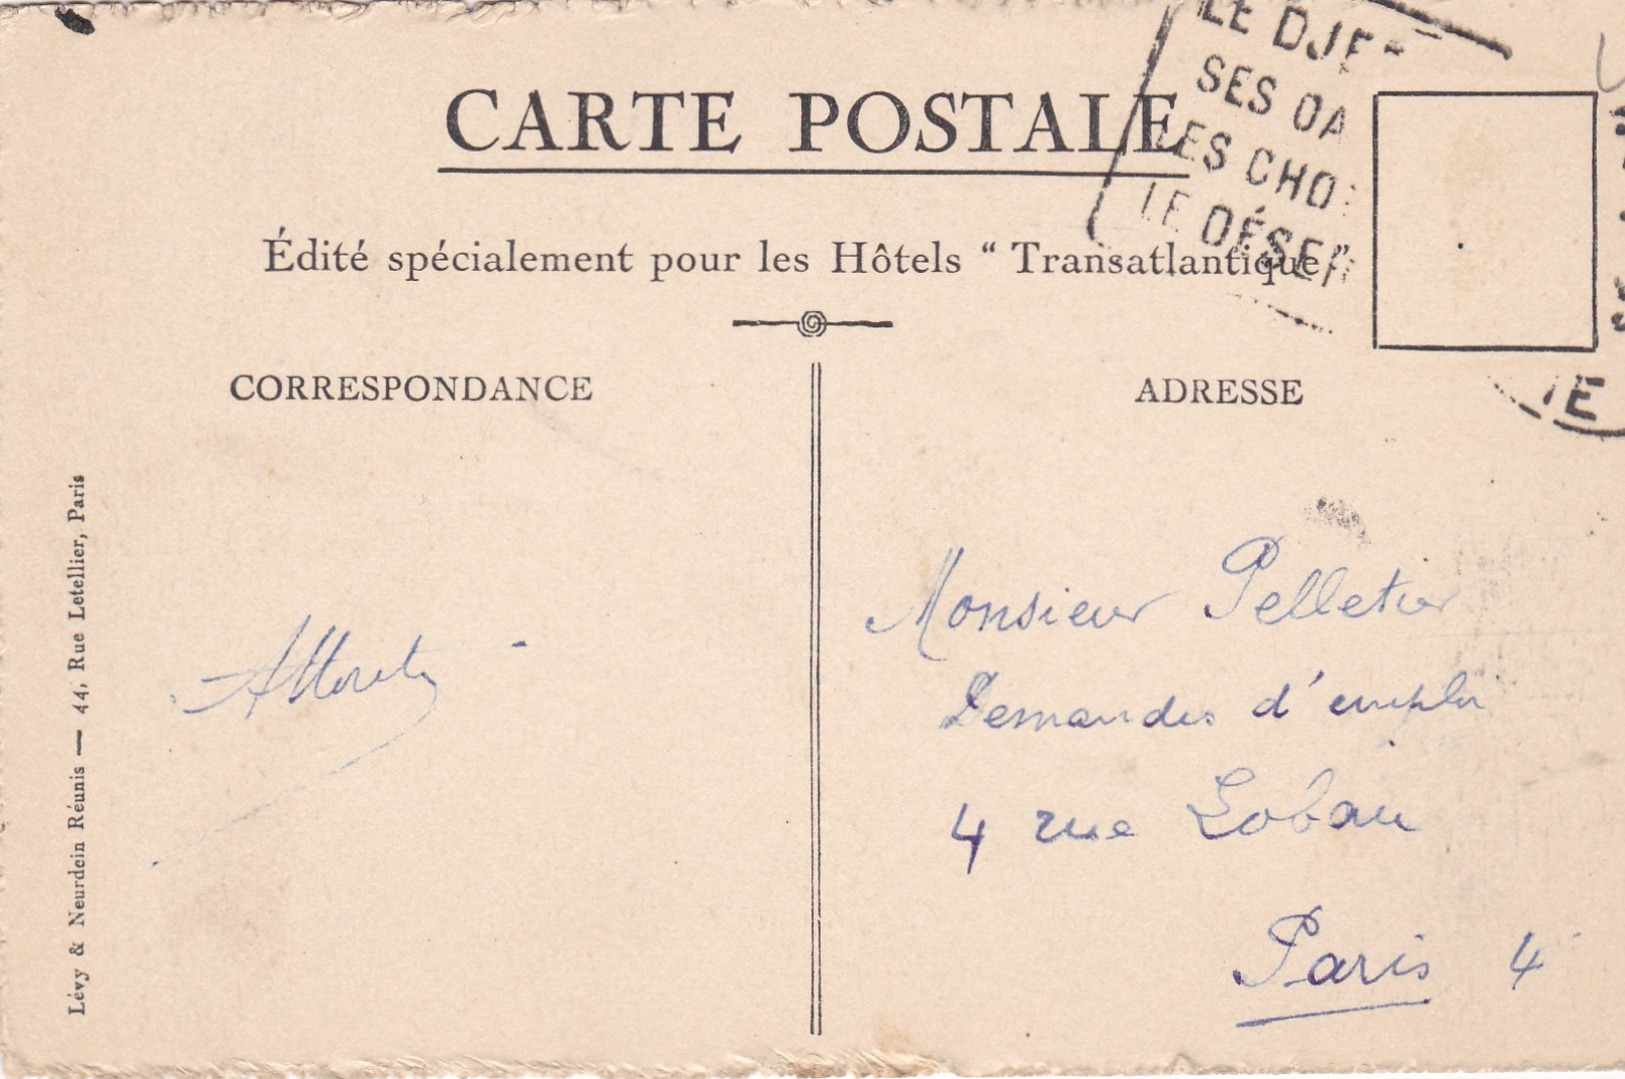 CARTE POSTALE
Édité spécialement pour les Hôtels “ Transatlantique ”
LE DJE
SES OA
LES CHO
LE DÉSER
IE
CORRESPONDANCE
ADRESSE
Lévy & Neurdein Réunis — 44, Rue Letellier, Paris
Monsieur Pelletier
Demandes d'emploi
4 rue Lobau
Paris 4